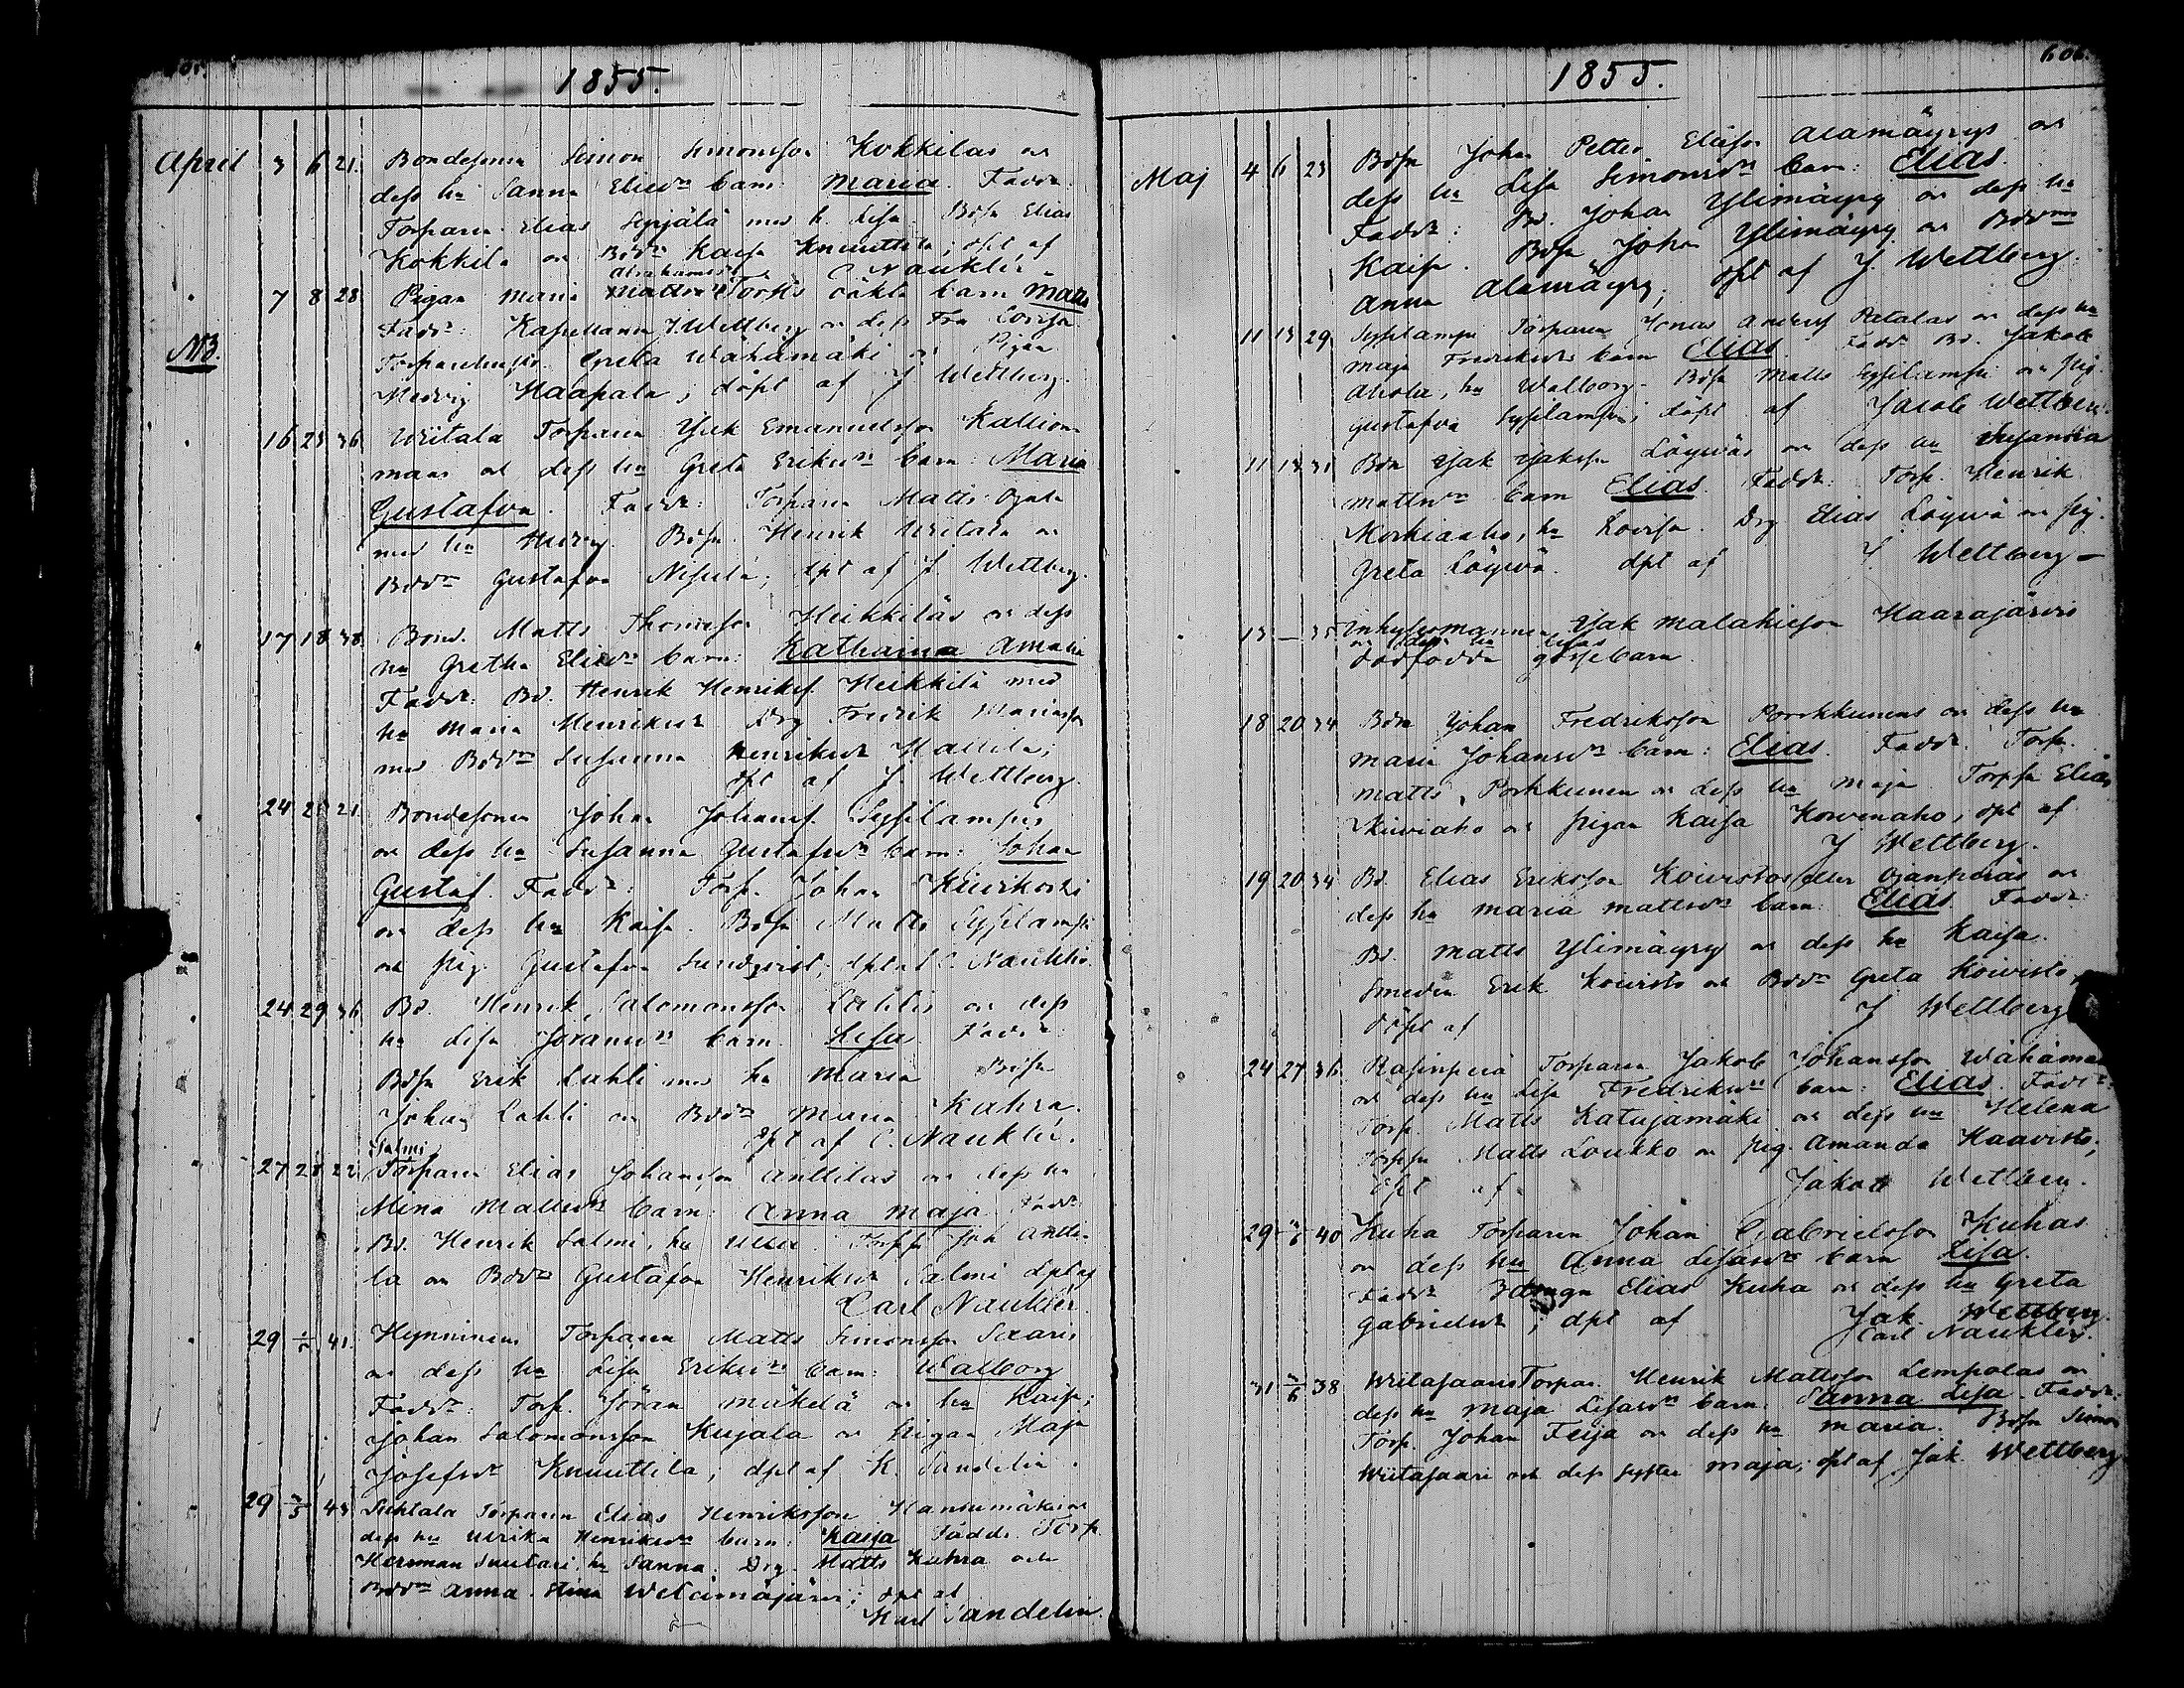 1855.
April 3 6 21. Bondesonen Simon Simonsson Kokkilas och
dess hu Sanna Eliedr barn: Maria. Faddr:
Torparen Elias Seppälä med h. Lisa. Bdsn Elias
Kokkila och Bddr Kaisa Knuuttila; dpt af
C Nauklér
7 8 28 Pigan Maria Abrahamsdr Torkis oäkta barn Matts
Faddr: Kapellanen J Wettberg och dess Fru Lovisa
NB. Torparehustr. Greta Wähämäki och Pigan
Hedvig Haapala; döpt af J Wettberg.
16 23 36 Wiitala Torparen Isak Emanuelsson Kallion-
maas och dess hu Greta Eriksdr barn: Maria
Gustafva. Faddr: Torparen Matts Ojala
med hu Hedvig. Bdsn. Henrik Wiitala och
Bddr Gustafva Nisula; dpt af J Wettberg.
17 18 38 Bond. Matts Thomasson Heikkiläs och dess
hu Gretha Eliedr barn: Katharina Amalia
Faddr: Bd. Henrik Henriksf. Heikkilä med
hu Maria Henriksdr Drg Fredrik Mariasson
med Bddr Susanna Henriksdr Hallila;
dpt af J. Wettberg.
24 25 21 Bondesonen Johan Johansf. Syssilampis
och dess hu Susanna Gustafsdr barn: Johan
Gustaf. Faddr: Torp. Johan Kiwikoski
och dess hu Kaisa. Bdsn Matts Syssilampi
och pig. Gustafva Sundqvist; dpt af C. Nauklér.
24 29 36 Bd. Henrik Salomonsson Lahtis och dess
hu Lisa Göransdr barn. Lisa Faddr:
Bdsn Erik Lahti med hu Maria Bdsn
Johan Lahti och Bddr Maria Kahra.
dpt af C. Nauklér.
Salmi
27 28 22 Torparen Elias Johansson Anttilas och dess hu
Mina Mattsdr barn: Anna Maja Faddr
Bd. Henrik Salmi, hu Ulla. Torpsn Isak Antti-
la och Bddr Gustafva Henriksdr Salmi dpt af
Carl Nauklér.
29 41. Hynninens Torparen Matts Simonsson Saaris
och dess hu Lisa Eriksdr barn: Walborg
Faddr: Torp. Göran Mäkelä och hu Kaisa;
Johan Salomonsson Kujala och pigan Maja
Josefsdr Knuuttila; dpt af K. Sandelin.
29 43 Lehtala Torparen Elias Henriksson Hansumäkis
dess hu Ulrika Henriksdr barn: Kaisa Faddr. Torp.
Herman Suutari, hu Sanna. Drg. Matts Kahra och
Bddr Anna Stina Welcimäjärvi; dpt af
Karl Sandelin.
606.
1855.
Maj 4 6 23 Bdsn Johan Petter Eliasson Alamäyrys och
dess hu Lisa Simonsdr barn: Elias.
Faddr: Bd. Johan Ylimäyry och dess hu
Kaisa. Bdsn Johan Ylimäyry och Bddr
Anna Alamäyry; dpt af J. Wettberg.
11 13 29 Syssilampi Torparen Jonas Andersf Patalas och dess hu
Maja Fredriksdr barn Elias Faddr Bd. Jakob
Ahola, hu Walborg. Bdsn Matts Syssilampi och pig.
Gustafva Syssilampi; döpt af Jacob Wettberg.
11 13 31 Bdn Isak Isaksson Löytväs och dess hu Susanna
Mattsdr barn Elias. Faddr: Torp. Henrik
Korkiaaho, hu Lovisa. Drg Elias Löytvä och pig.
Greta Löytvä. dpt af J Wettberg
13 — 35 Inhysesmannen Isak Malakiesson Haarajärvis
och dess hu Lisas
dödfödda gossebarn.
18 20 34 Bdn Johan Fredriksson Porkkunens och dess hu
Maria Johansdr barn: Elias. Faddr. Torp.
Matts Porkkunen och dess hu Maja Torpsn Elias
Kiviaho och pigan Kaisa Korvenaho, dpt af
J Wettberg.
19 20 34 Bd. Elias Eriksson Koivistos eller Ojanperäs och
dess hu Maria Mattsdr barn: Elias. Faddr:
Bd. Matts Ylimäyry och dess hu Kaisa.
Smeden Erik Koivisto och Bddr Greta Koivisto,
döpt af J Wettberg
24 27 36 Rasinperä Torparen Jakob Johansson Wähämäki
och dess hu Lisa Fredriksdr barn: Elias. Faddr:
Torp. Matts Katajamäki och dess hu Helena
Torpsn Matts Loukko och pig. Amanda Haavisto;
döpt af Jakob Wettberg.
29 40 Kuha Torparen Johan Gabrielsson Kuhas
och dess hu Anna Lisasdr barn Lisa.
Faddr Elias Kuha och dess hu Greta
Gabrielsdr; dpt af Jak. Wettberg.
Carl Nauklér.
31 38 Wiitasaaris Torpar. Henrik Mattsson Lempolas och
dess hu Maja Lisasdr barn: Sanna Lisa. Faddr:
Torp. Johan Feija och dess hu Maria. Bdsn Simon
Wiitasaari och dess syster Maja; dpt af Jak. Wettberg